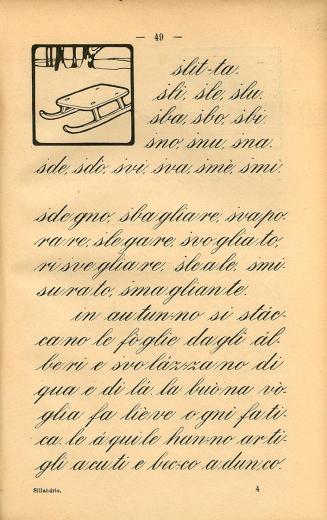 — 49 —
slit-ta.
sli, sle, slu.
sba, sbo, sbi
sno, snu, sna.
sde, sdò, svi, sva, smè, smi.
sdegno, sbagliare, svapo-
rare, slegare, svogliato,
risvegliare, sleale, smi-
surato, smagliante.
in autun-no si stác-
cano le fòglie dagli ál-
beri e svoláz-zano di
qua e di lá. la buòna vò-
glia fa lieve ogni fati-
ca. le áquile han-no arti-
gli acuti e bec-co adun-co.
Sillabário.
4